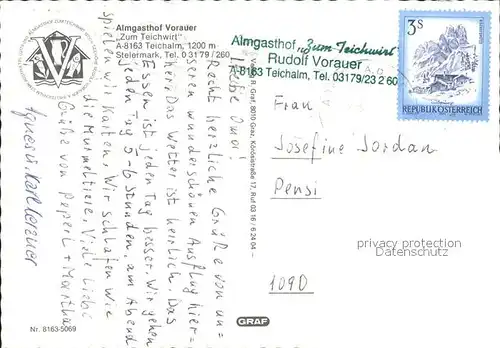 Almgasthof Vorauer
"Zum Teichwirt"
A-8163 Teichalm, 1200 m
Steiermark, Tel. 0 31 79 / 260
Almgasthof „Zum Teichwirt"
Rudolf Vorauer
A-8163 Teichalm, Tel. 03179/23 2 60
3S
REPUBLIK ÖSTERREICH
Liebe Omi!
Recht herzliche Grüße von un-
serem wunderschönen Ausflug hier-
her. Das Wetter ist herrlich. Das
Essen ist jeden Tag besser. Wir gehen
jeden Tag 5-6 Stunden, am Abend
spielen wir Karten. Wir schlafen wie
die Murmeltiere. Viele liebe
Grüße von Peperl + Martha
Agnes u. Karl
Frau
Josefine Jordan
Pensi
1090
R. Graf, 8010 Graz,
17, Ruf 03 16 / 6 24 04 –
privacy protection
Datenschutz
Nr. 8163-5069
GRAF